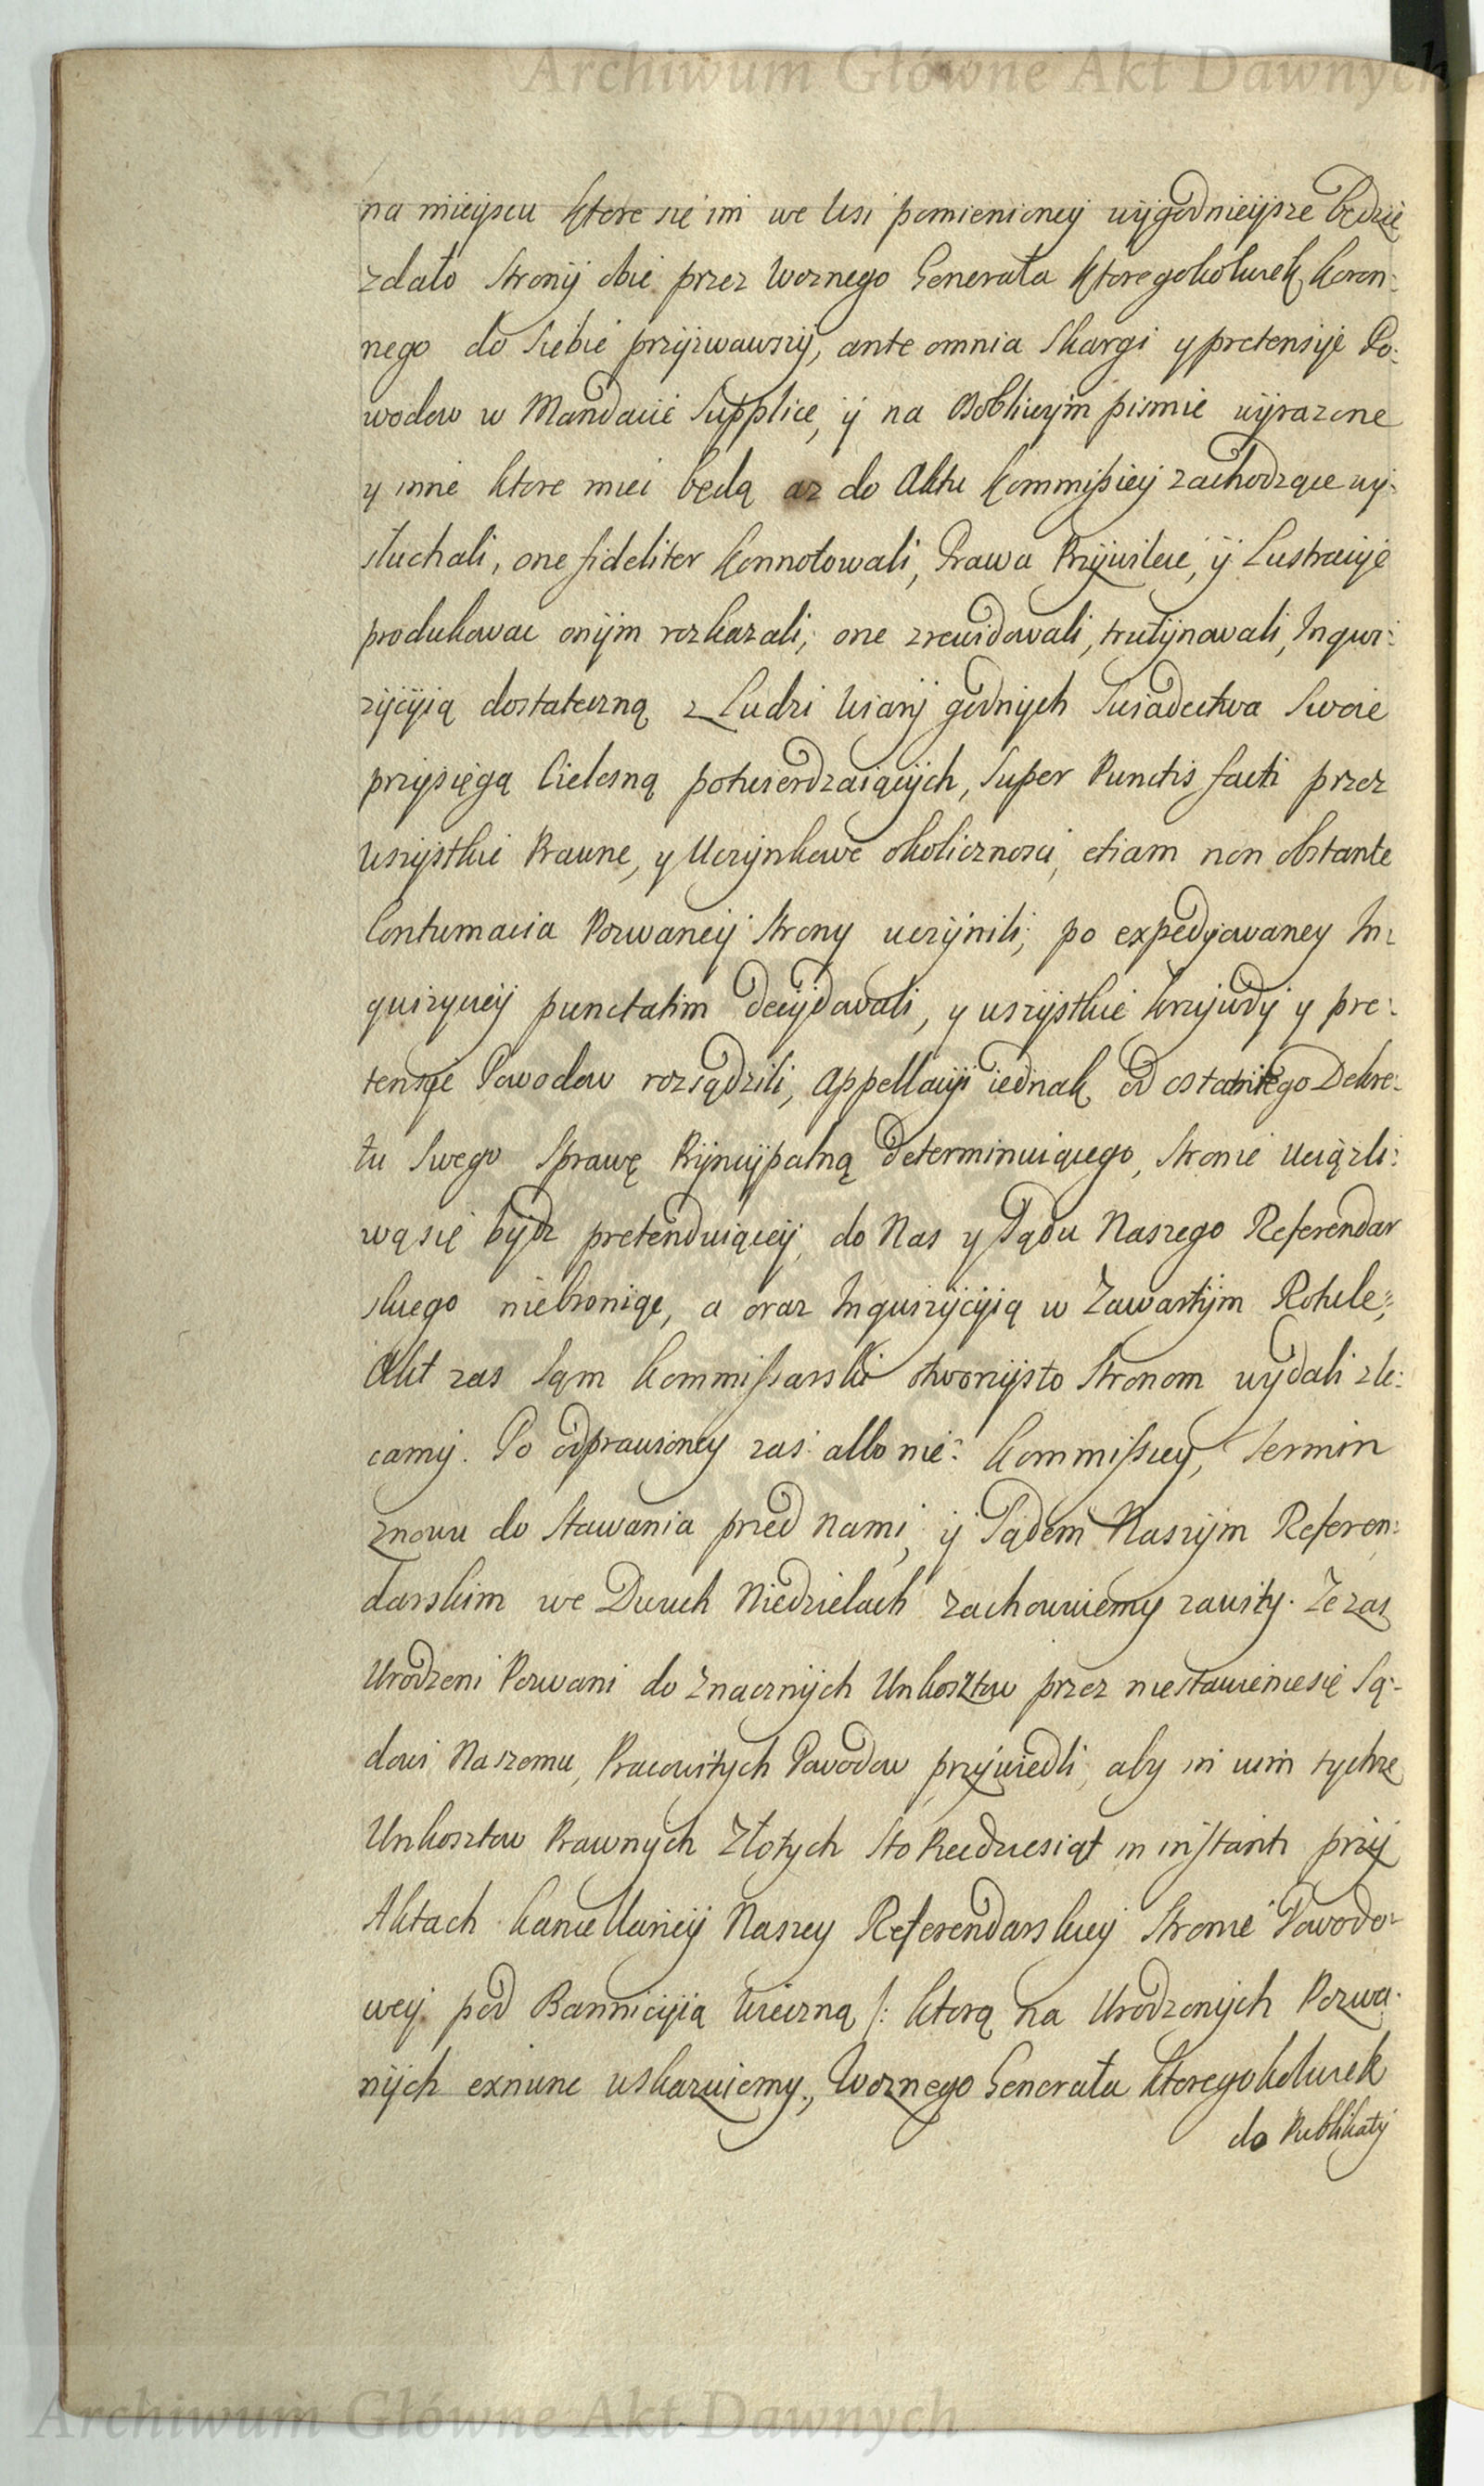 Archiwum Główne Akt Dawnych
na mieyscu ktore się im we Wsi pomienioney wygodnieysze będzie
zdało Strony obie przez Woznego Generała ktoregokolwiek Koron:
nego do Siebie przyzwawszy, ante omnia Skargi y pretensye Po:
wodow w Mandacie Supplice, y na Osobliwym pismie wyrazone
y inne ktore miec będą az do Aktu Kommissiey zachodzące wy:
słuchali, one fideliter konnotowali, Prawa Przywileie, y Lustracye
produkowac onym rozkazali, one zrewidowali, trutynowali, Inqwi:
zycyią dostateczną z Ludzi Wiary godnych Swiadectwa Swoie
przysięgą Cielesną potwierdzaiących, Super Punctis facti przez
wszystkie Prawne, y Uczynkowe okolicznosci, etiam non obstante
Contumacia Pozwaney Strony uczynili, po expedyowaney In:
quizycyey punctatim decydowali, y wszystkie krzywdy y pre:
tensye Powodow rozsądzili, Appellacyi iednak od ostatniego Dekre:
tu Swego Sprawę Pryncypalną determinuiącego, Stronie Uciązli:
wą się bydz pretenduiącey, do Nas y Sądu Naszego Referendar
skiego niebroniąc, a oraz Inquizycyią w Zawartym Rotule,
Akt zas Sąm Kommissarski otworzysto Stronom wydali zle:
camy. Po odprawioney zas albo nie: Kommissiey, Termin
znowu do Stawania przed Nami, y Sądem Naszym Referen:
darskim we Dwuch Niedzielach zachowuiemy zawity. Ze zas
Urodzeni Pozwani do Znacznych Unkosztow przez niestawienie się Są:
dowi Naszemu, Pracowitych Powodow przywiedli, aby im win tychze
Unkosztow Prawnych Złotych Sto Pięcdziesiąt in instanti przy
Aktach Kancellariey Naszey Referendarskiey Stronie Powodo:
wey pod Bannicyią Wieczną /: ktorą na Urodzonych Pozwa:
nych exnunc wskazuiemy, Woznego Generała ktoregokolwiek
do Publikaty
Archiwum Główne Akt Dawnych